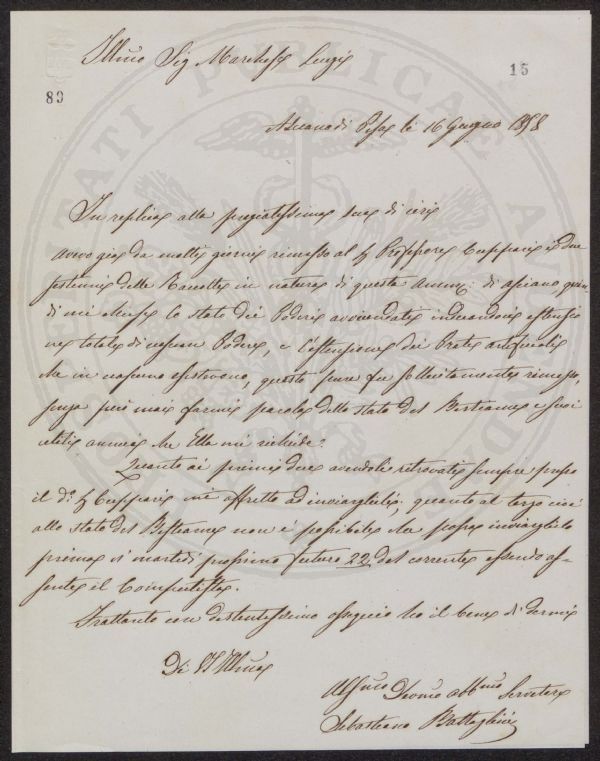 Illmo Sig Marchese Luigi
15
89
Asciano di Pisa li 16 Giugno 1858
In replica alla pregiatissima sua di ieri
avevo già da molti giorni rimesso al Sg Professore Cuppari i due
delle Raccolte in natura di questa
di mi chiese lo stato dei Poderi avvicendati indicandovi
totale di ciascun Podere, e l'estensione dei Prati artificiali
che in ciascuno esistevano, questo pure fu sollecitamente rimesso,
senza più mai farmi parola dello stato del Bestiame e suoi
utili annui che Ella mi richiede.
Quanto ai primi due avendoli ritrovati sempre presso
il Do Sg Cuppari mi affretto ad inviarglieli; quanto al terzo cioè
allo stato del Bestiame non è possibile che possa inviarglielo
prima di martedì prossimo futuro 22 del corrente essendo as-
sente il Computista.
Frattanto con distintissimo ossequio ho il bene di dirmi
Di VS Illma
Devmo Obbmo Servitore
Sebastiano Battaglini
SOCIETATI PUBLICAE